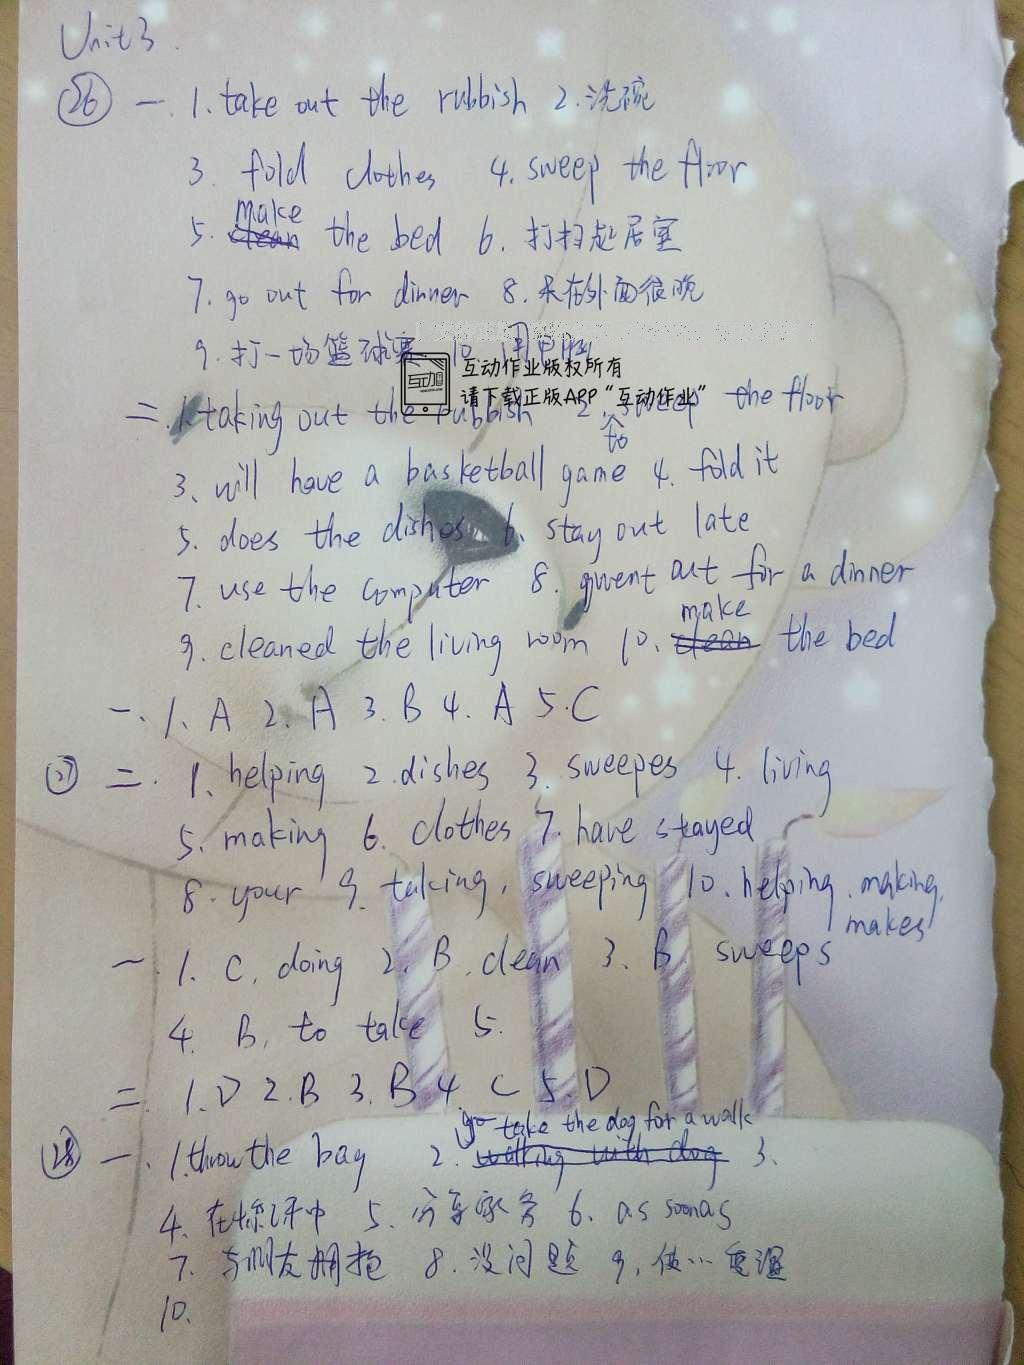 Unit 3.
26 一. 1. take out the rubbish 2. 洗碗
3. fold clothes 4. sweep the floor
5. make the bed 6. 打扫起居室
7. go out for dinner 8. 呆在外面很晚
9. 打一场篮球赛 10. 用电脑
互动作业版权所有
请下载正版APP“互动作业”
二. 1. taking out the rubbish 2. to sweep the floor
3. will have a basketball game 4. fold it
5. does the dishes 6. stay out late
7. use the computer 8. went out for a dinner
9. cleaned the living room 10. make the bed
一. 1. A 2. A 3. B 4. A 5. C
27 二. 1. helping 2. dishes 3. sweepes 4. living
5. making 6. clothes 7. have stayed
8. your 9. taking, sweeping 10. helping, making,
makes
一. 1. C. doing 2. B. clean 3. B sweeps
4. B. to take 5.
二. 1. D 2. B 3. B 4 C 5. D
28 一. 1. throw the bag 2. go take the dog for a walk 3.
4. 在 中 5. 分享家务 6. as soon as
7. 与朋友 8. 没问题 9. 使…
10.